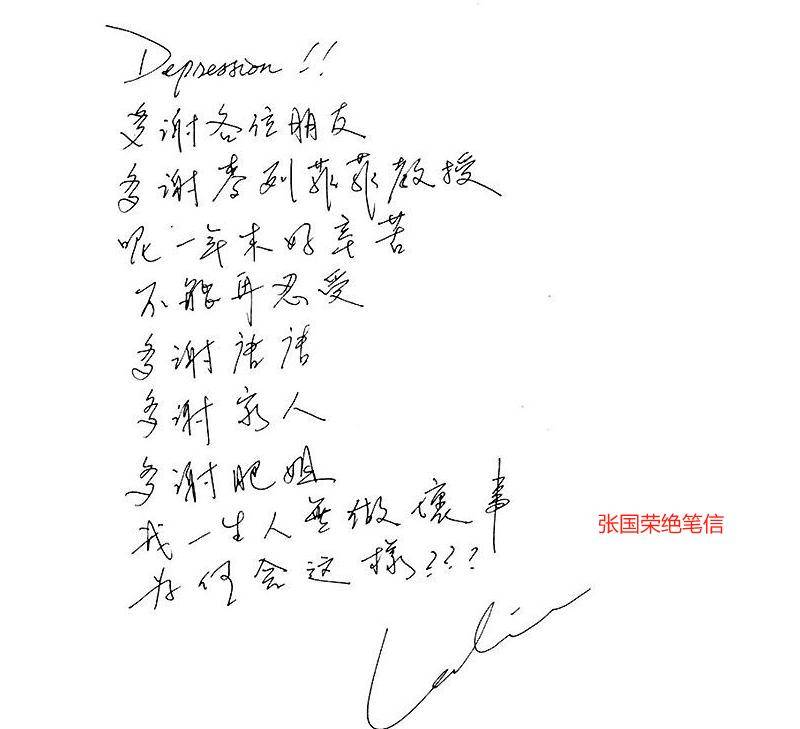 Depression !!
多谢各位朋友
多谢李列菲菲教授
呢一年来好辛苦
不能再忍受
多谢唐唐
多谢家人
多谢肥姐
我一生人無做壞事
为何会这樣???
张国荣绝笔信
Leslie